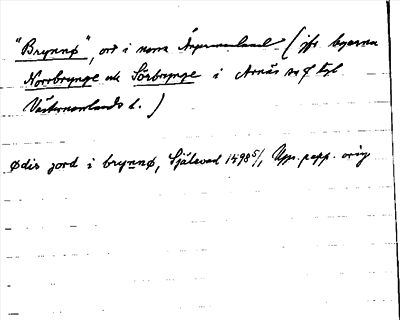 "Brynnø", ord i norra Ångermanland (jfr byarna
Norrbrynge och Sörbrynge i Arnäs sn f tyl
Västernorrlands l.)
ødis jord i brynnø, Själevad 1498 5/1, Upps. papp. orig